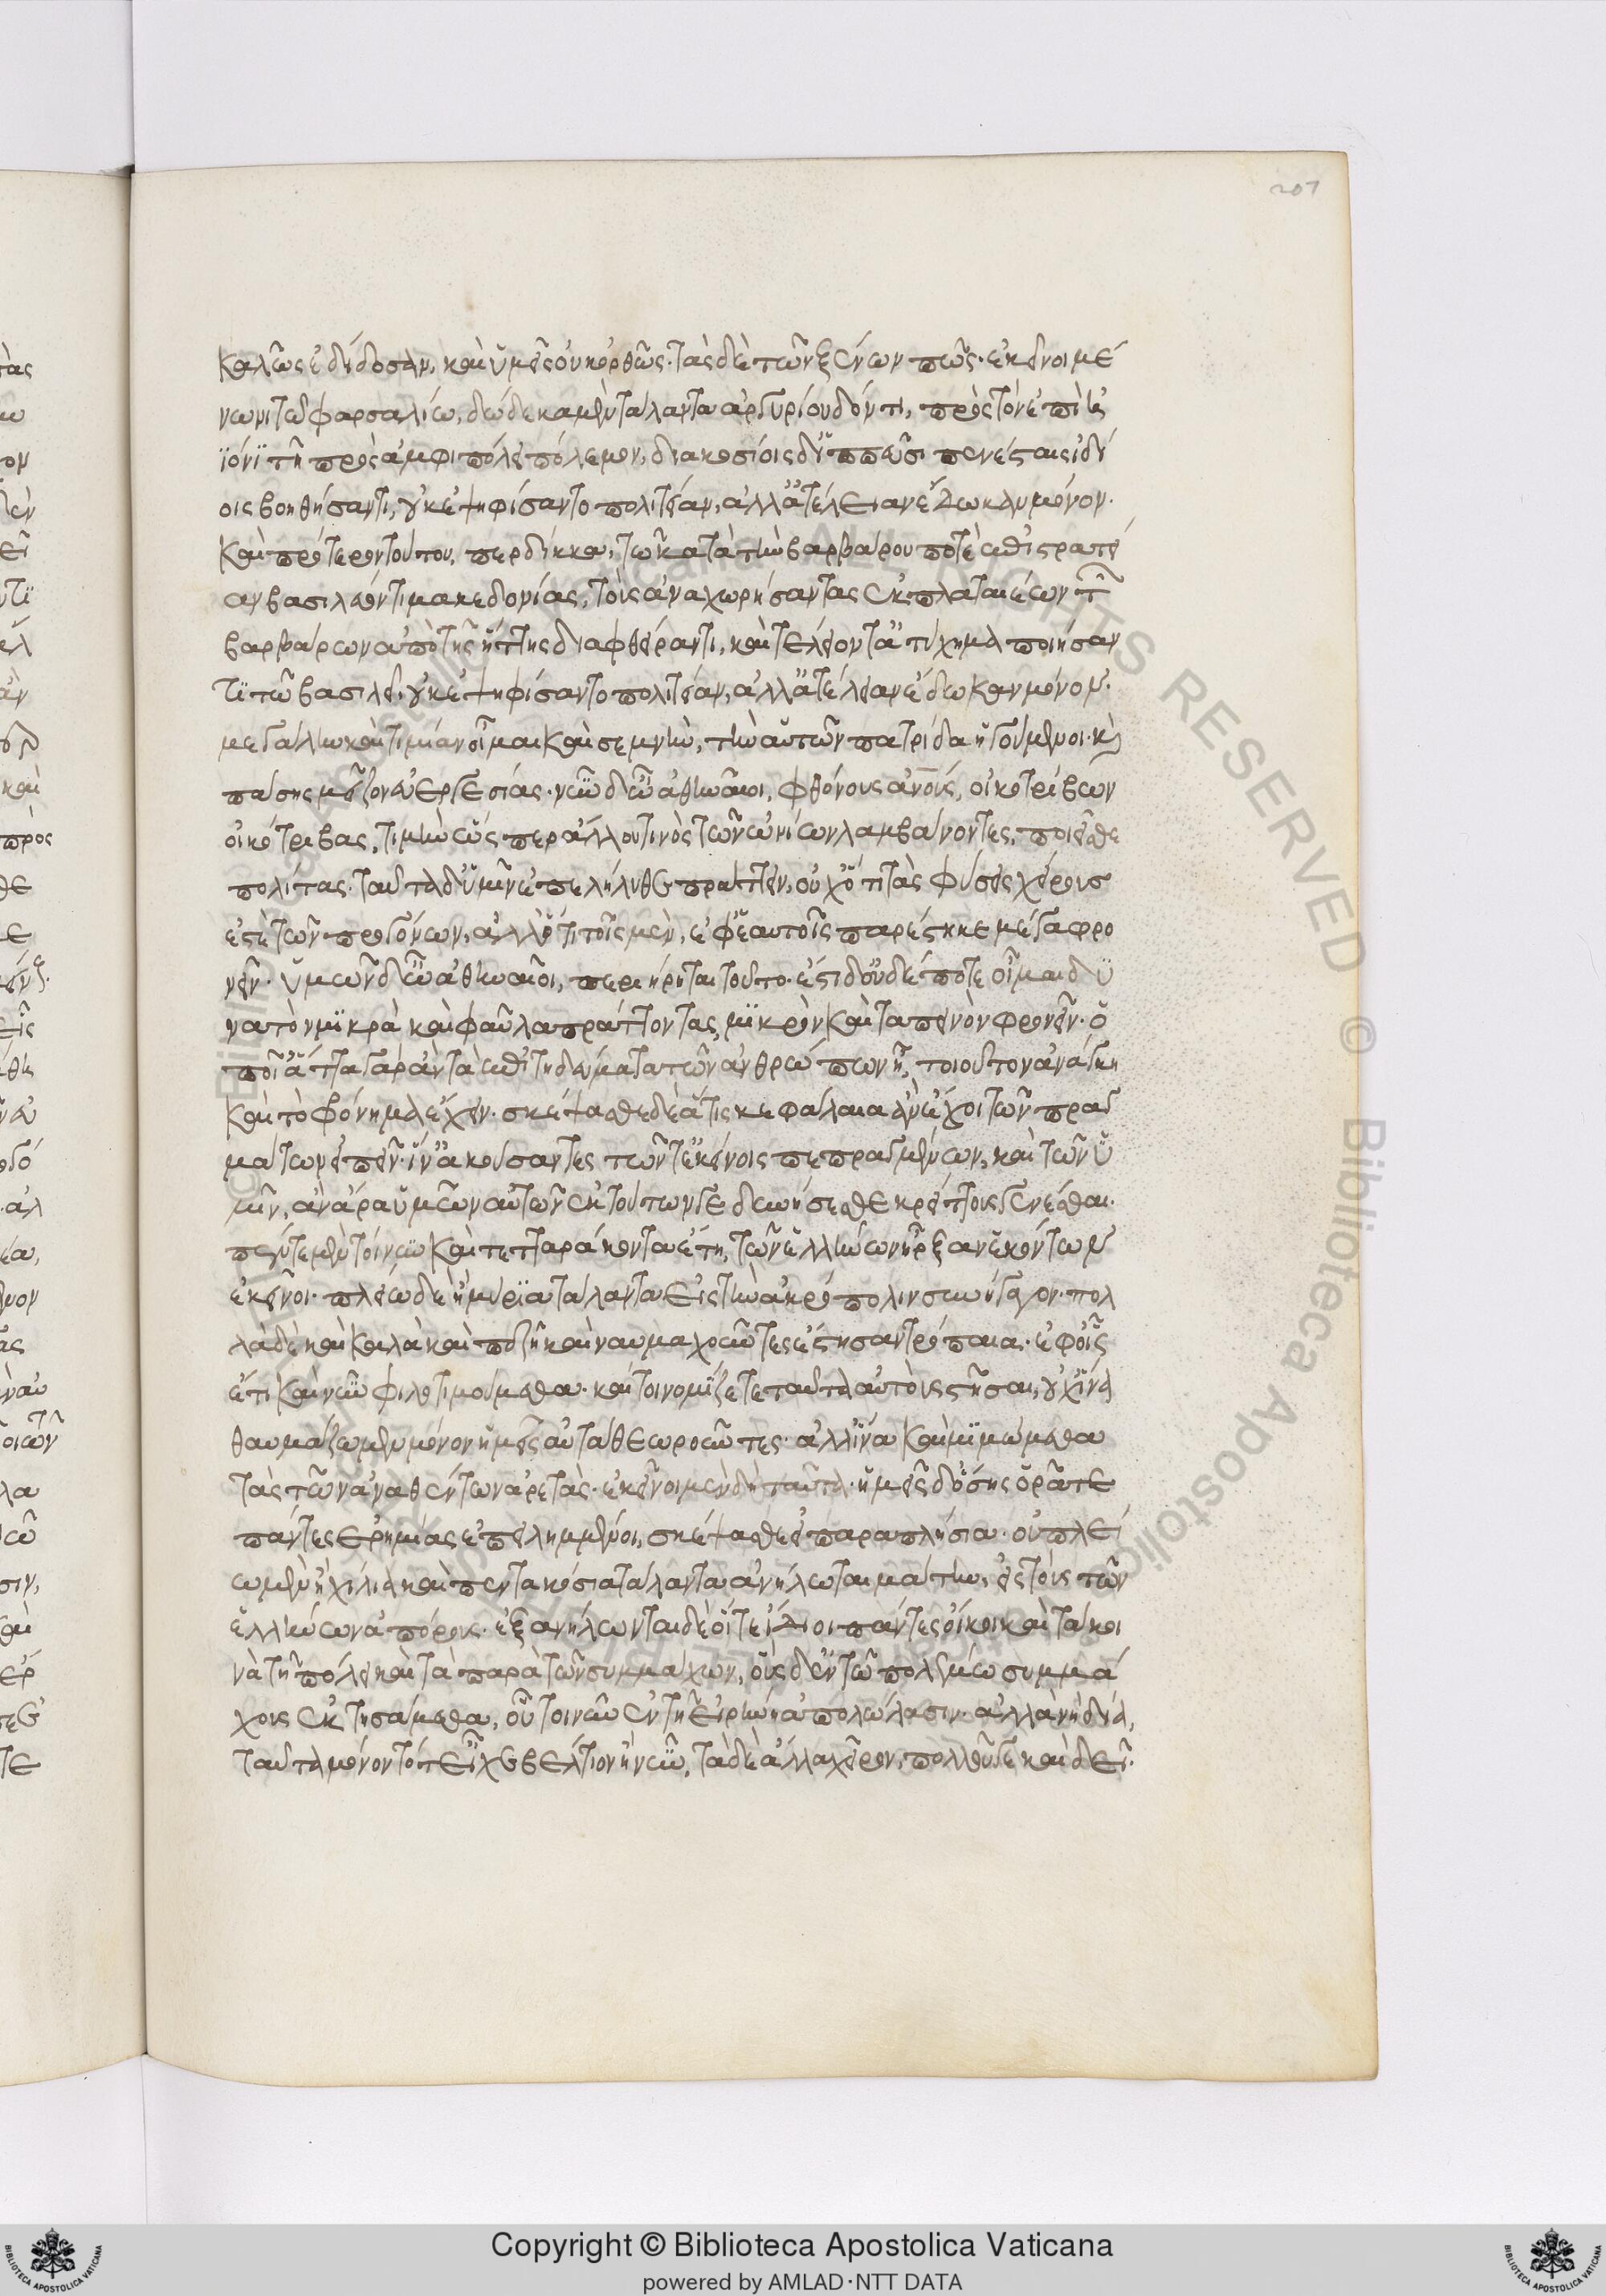 207
καλῶς ἐδίδοσαν, καὶ ὑμεῖς οὐκ ὀρθῶς. τὰς δὲ τῶν ξένων πῶς. ἐκεῖνοι μέ
νωνι τῷ φαρσαλίῳ, δώδεκα μὲν τάλαντα ἀργυρίου δόντι, πρὸς τὸν ἐπ
ϊόνϊ τῆ πρὸς ἀμφιπόλει πόλεμον, διακοσίοις δ' ἱππεῦσι πενέσταις ἰδί
οις βοηθήσαντι, οὐκ ἐψηφίσαντο πολιτείαν, ἀλλ' ἀτέλειαν ἔδωκαν μόνον.
καὶ πρότερον τούτου, περδίκκα, τῷ κατὰ τὴν βαρβάρου ποτὲ ἐπιστρατεί
αν βασιλεύοντι μακεδονίας, τοὺς ἀναχωρήσαντας ἐκ πλαταιέων τῶν
βαρβάρων ἀπὸ τῆς ἥττης διαφθείραντι, καὶ τέλειον τἀτύχημα ποιήσαν
τϊ τῷ βασιλεῖ, οὐκ ἐψηφίσαντο πολιτείαν, ἀλλ' ἀτέλειαν ἔδωκαν μόνον.
μεγάλην καὶ τιμίαν οἶμαι καὶ σεμνὴν, τὴν αὑτῶν πατρίδα ἡγούμενοι. καὶ
πάσης μείζον' εὐεργεσίας. νῦν δ' ὦ ἀθηναῖοι, φθόρους ἀνους, οἰκοτρίβων
οἰκότριβας, τιμὴν ὥσπερ ἄλλου τινὸς τῶν ὠνίων λαμβάνοντες, ποιεῖσθε
πολίτας. ταῦτα δ' ὑμῖν ἐπελήλυθε πράττειν, οὐχ ὅτι τὰς φύσεις χείρους
ἐστὲ τῶν προγόνων, ἀλλ' ὅτι τοῖς μὲν, ἐφ' ἑαυτοῖς παρέστηκε μέγα φρο
νεῖν. ὑμῶν δ' ὦ ἀθηναῖοι, περιήρηται τοῦτο. ἔστι δ' οὐδέποτε οἶμαι δυ
νατὸν μϊκρὰ καὶ φαῦλα πράττοντας, μϊκρὸν καὶ ταπεινὸν φρονεῖν. ὁ
ποῖ' ἄττα γὰρ ἂν τὰ ἐπιτηδεύματα τῶν ἀνθρώπων ῇ, τοιοῦτον ἀνάγκη
καὶ τὸ φρόνημα ἔχειν. σκέψασθε δὲ ἅ τις κεφάλαια ἂν ἔχοι τῶν πραγ
μάτων εἰπεῖν. ἵν' ἀκούσαντες τῶν τ' ἐκείνοις πεπραγμένων, καὶ τῶν ὑ
μῖν, ἂν ἄρα ὑμῶν αὐτῶν ἐκ τούτων γε δυνήσεσθε κρείττους γενέσθαι.
πέντε μὲν τοίνυν καὶ τετταράκοντα ἔτη, τῶν ἑλλήνων ἦρξαν ἑκόντων
ἐκεῖνοι. πλείω δὲ ἢ μύρϊα τάλαντα εἰς τὴν ἀκρόπολιν συνήγαγον. πολ
λὰ δὲ καὶ καλὰ καὶ πεζῆ καὶ ναυμαχοῦντες ἔστησαν τρόπαια. ἐφ' οἷς
ἔτι καὶ νῦν φιλοτιμούμεθα. καίτοι νομίζετε ταῦτα αὐτοὺς στῆσαι, οὐχ ἵνα
θαυμάζωμεν μόνον ἡμεῖς αὐτὰ θεωροῦντες. ἀλλ' ἵνα καὶ μϊμώμεθα
τὰς τῶν ἀναθέντων ἀρετάς. ἐκεῖνοι μὲν δὴ ταῦτα. ἡμεῖς δ' ὅσης ὁρᾶτε
πάντες ἐρημίας ἐπειλημμένοι, σκέψασθε εἰ παραπλήσια. οὐ πλεί
ω μὲν ἢ χίλια καὶ πεντακόσια τάλαντα ἀνήλωται μάτην, εἰς τοὺς τῶν
ἑλλήνων ἀπόρους. ἐξανήλωνται δὲ οἵ τε ἴδιοι πάντες οἶκοι καὶ τὰ κοι
νὰ τῆ πόλει καὶ τὰ παρὰ τῶν συμμάχων, οὓς δ' ἐν τῷ πολέμῳ συμμά
χους ἐκτησάμεθα, οὗτοι νῦν ἐν τῆ εἰρήνη ἀπολώλασιν. ἀλλὰ νὴ δία,
ταῦτα μόνον τότε εἶχε βέλτιον ἢ νῦν, τὰ δὲ ἄλλα χεῖρον, πολλοῦ γε καὶ δεῖ.
Copyright © Biblioteca Apostolica Vaticana
powered by AMLAD·NTT DATA